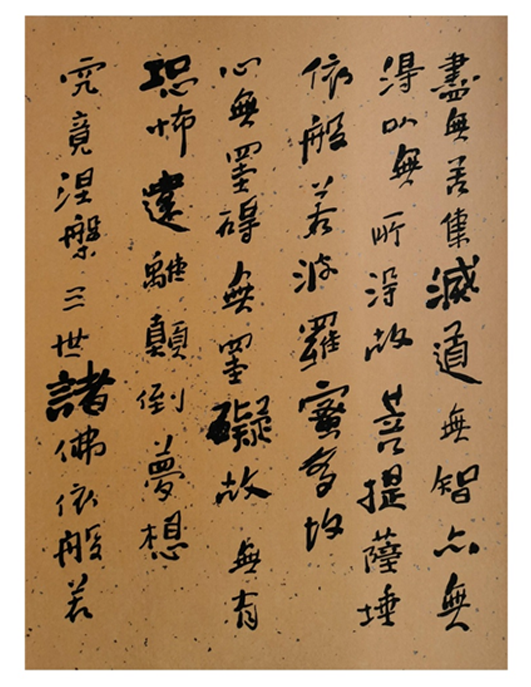 盡無苦集滅道無智亦無
得以無所得故菩提薩埵
依般若波羅蜜多故
心無罣礙無罣礙故無有
恐怖遠離顛倒夢想
究竟涅槃三世諸佛依般若